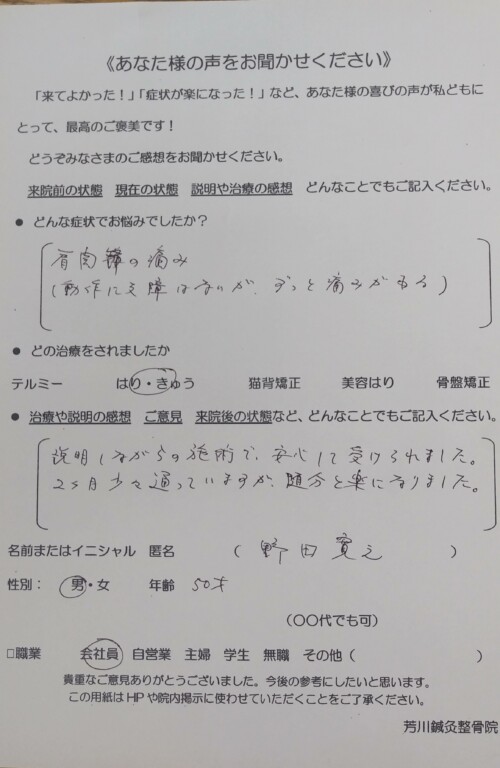 《あなた様の声をお聞かせください》
「来てよかった！」「症状が楽になった！」など、あなた様の喜びの声が私どもに
とって、最高のご褒美です！
どうぞみなさまのご感想をお聞かせください。
来院前の状態 現在の状態 説明や治療の感想 どんなことでもご記入ください。
● どんな症状でお悩みでしたか？
の痛み
(動作に支障はないが、ずっと痛みがある)
● どの治療をされましたか
テルミー はり・きゅう 猫背矯正 美容はり 骨盤矯正
● 治療や説明の感想 ご意見 来院後の状態など、どんなことでもご記入ください。
説明しながらの施術で、安心して受けられました。
2ヶ月少々通っていますが、随分と楽になりました。
名前またはイニシャル 匿名 ( 野田寛之 )
性別： 男・女 年齢 50才
(〇〇代でも可)
□職業 会社員 自営業 主婦 学生 無職 その他 ( )
貴重なご意見ありがとうございました。今後の参考にしたいと思います。
この用紙はHPや院内掲示に使わせていただくことをご了承ください。
芳川鍼灸整骨院